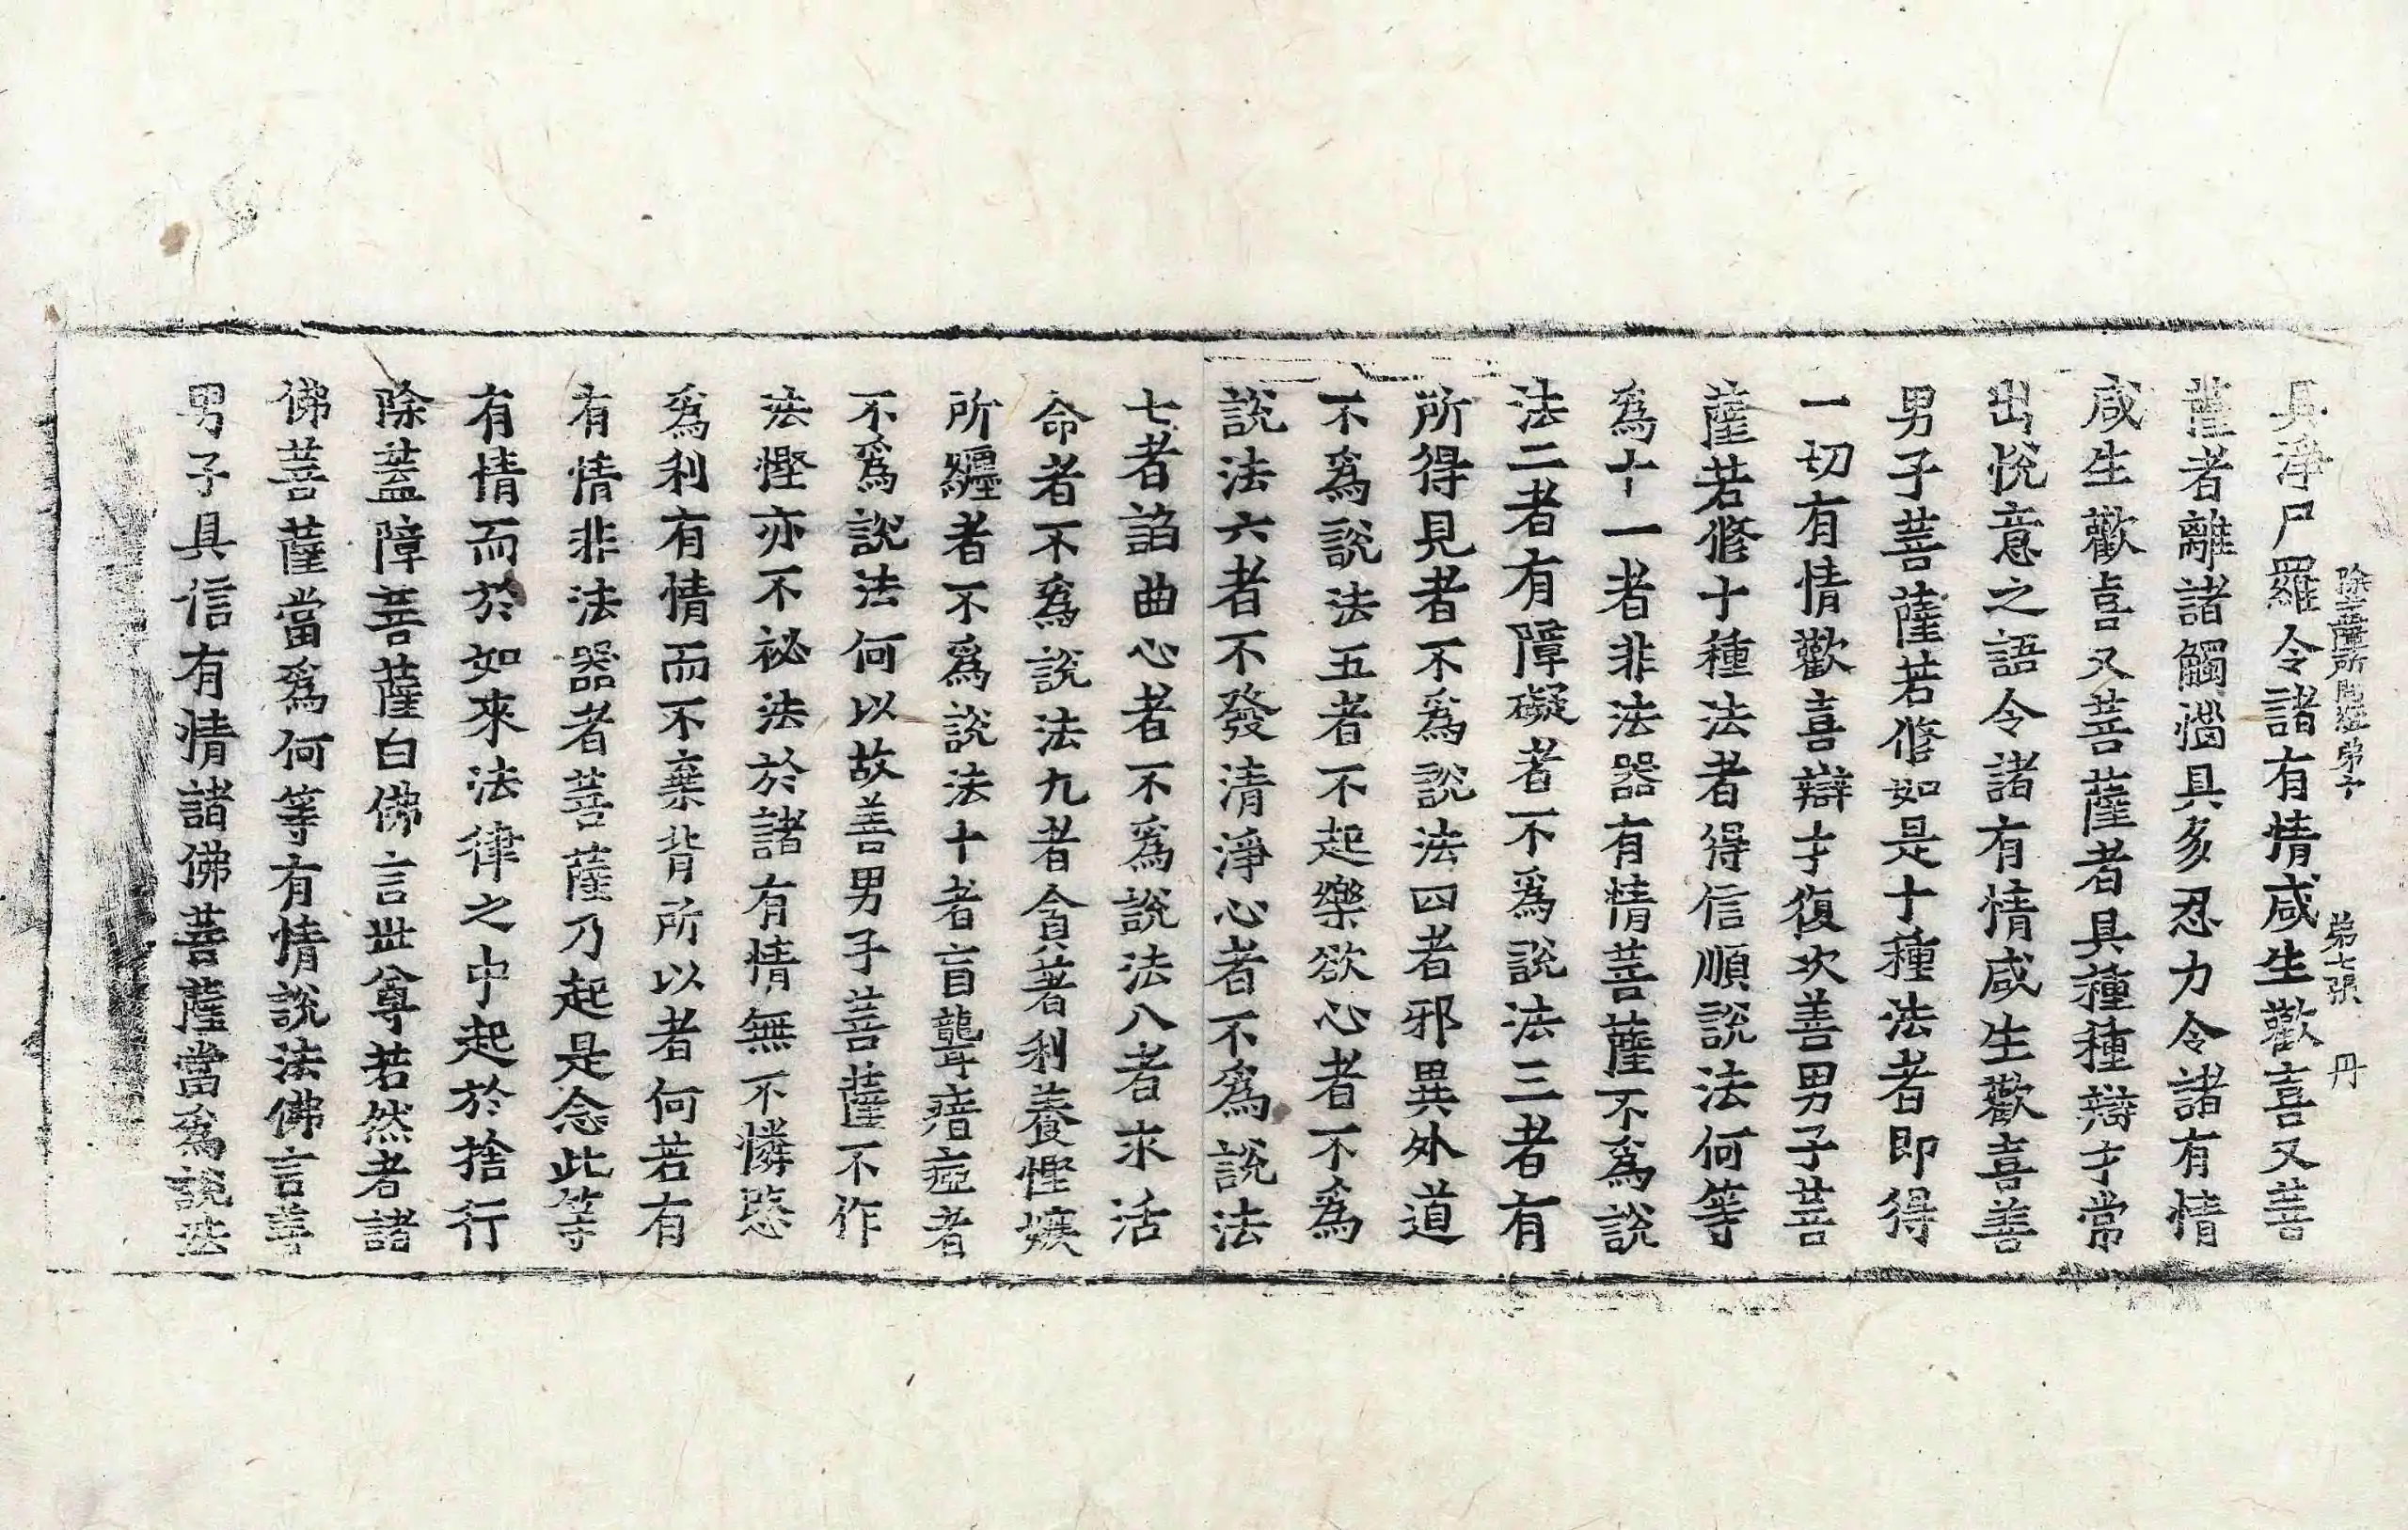 除蓋障菩薩所問經第十　第七張　丹
具淨尸羅令諸有情咸生歡喜又菩
薩者離諸觸惱具多忍力令諸有情
咸生歡喜又菩薩者具種種辯才常
出悅意之語令諸有情咸生歡喜善
男子菩薩若修如是十種法者即得
一切有情歡喜辯才復次善男子菩
薩若修十種法者得信順說法何等
為十一者非法器有情菩薩不為說
法二者有障礙者不為說法三者有
所得見者不為說法四者邪異外道
不為說法五者不起樂欲心者不為
說法六者不發清淨心者不為說法
七者諂曲心者不為說法八者求活
命者不為說法九者貪著利養慳嫉
所纏者不為說法十者盲聾瘖瘂者
不為說法何以故善男子菩薩不作
法慳亦不祕法於諸有情無不憐愍
為利有情而不棄背所以者何若有
有情非法器者菩薩乃起是念此等
有情而於如來法律之中起於捨行
除蓋障菩薩白佛言世尊若然者諸
佛菩薩當為何等有情說法佛言善
男子具信有情諸佛菩薩當為說法